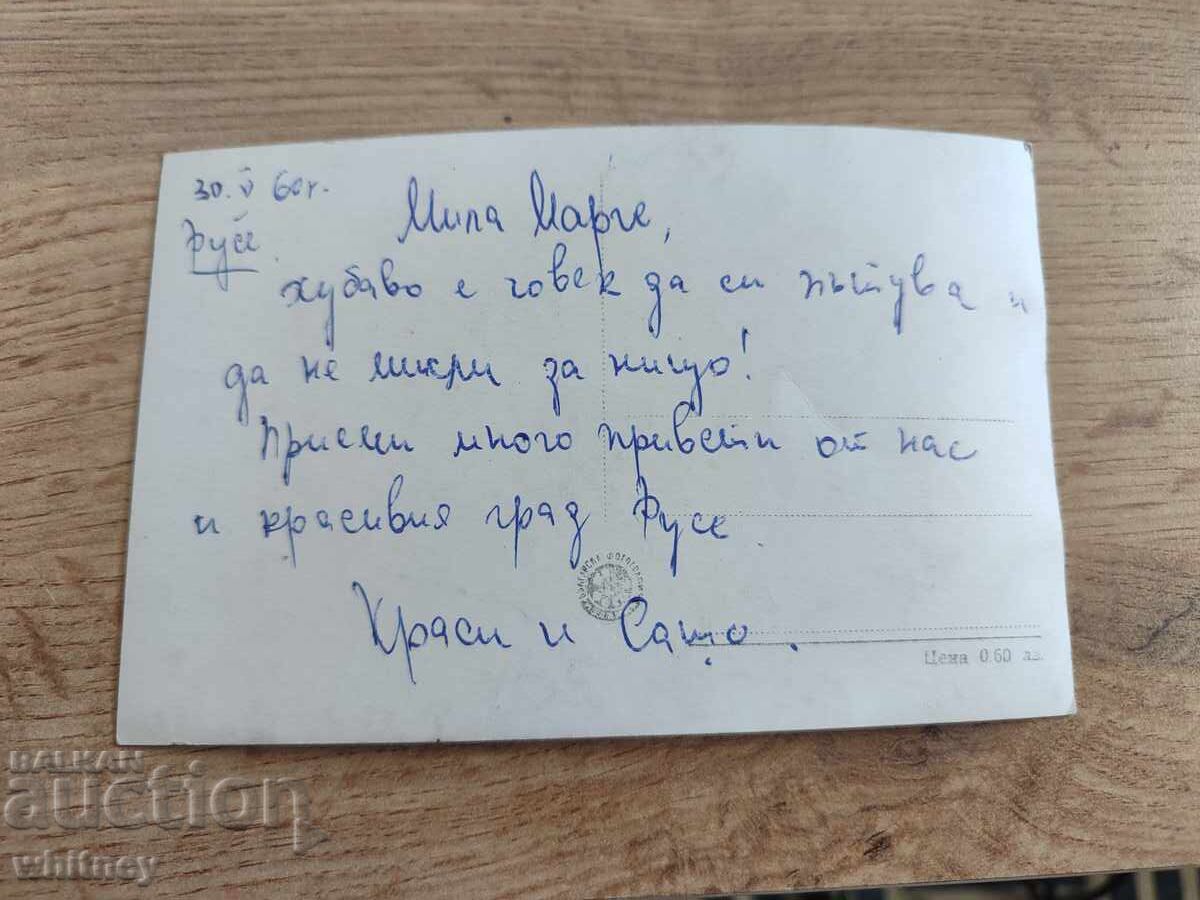 30.V 60г.
Русе
Мила Марче,
хубаво е човек да си пътува и
да не мисли за нищо!
Приеми много привети от нас
и красивия град Русе
Краси и Сашо.
БЪЛГАРСКА ФОТОГРАФИЯ
Цена 0.60 лв.
BALKAN
auction
whitney